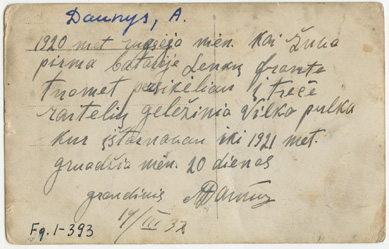 Daunys, A.
1920 met. mėn. kai žuvo
pirma batalijo Lenkų fronte
tuomet persikėliau į trečę
geležinia Vilko pulka
kur ištarnavau iki 1921 met.
gruodžio mėn. 20 dienos
grandinis ADaunys
14/III 32
Fg. 1-393